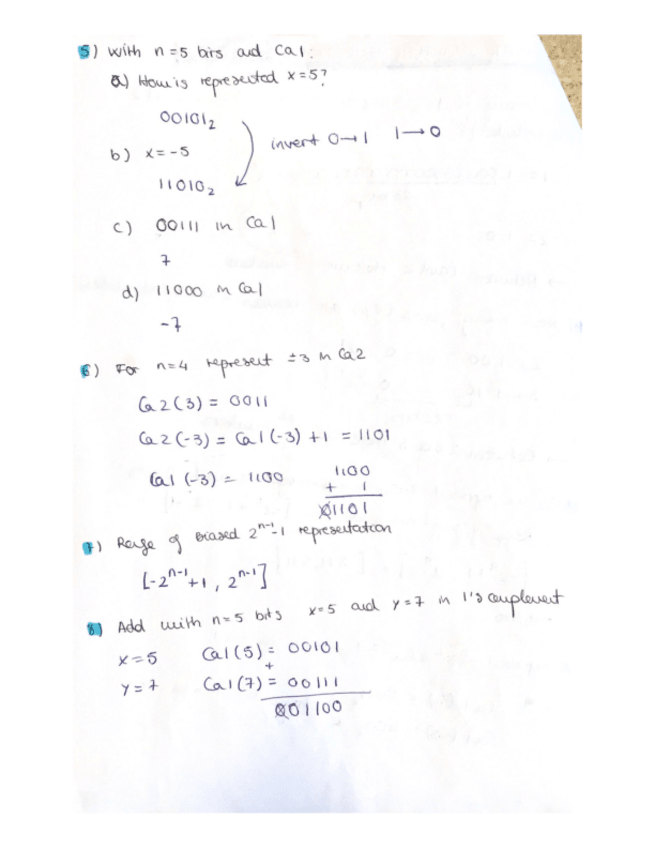 5) With n=5 bits and Ca1:
a) How is represented x=5?
00101₂
invert 0→1 1→0
b) x=-5
11010₂
c) 00111 in Ca1
7
d) 11000 in Ca1
-7
6) For n=4 represent ±3 in Ca2
Ca2(3) = 0011
Ca2(-3) = Ca1(-3) +1 = 1101
Ca1(-3) = 1100
1100
+ 1
01101
7) Range of biased 2ⁿ⁻¹-1 representation
[-2ⁿ⁻¹+1, 2ⁿ⁻¹]
8) Add with n=5 bits x=5 and y=7 in 1's complement
x=5 Ca1(5) = 00101
+
y=7 Ca1(7) = 00111
001100